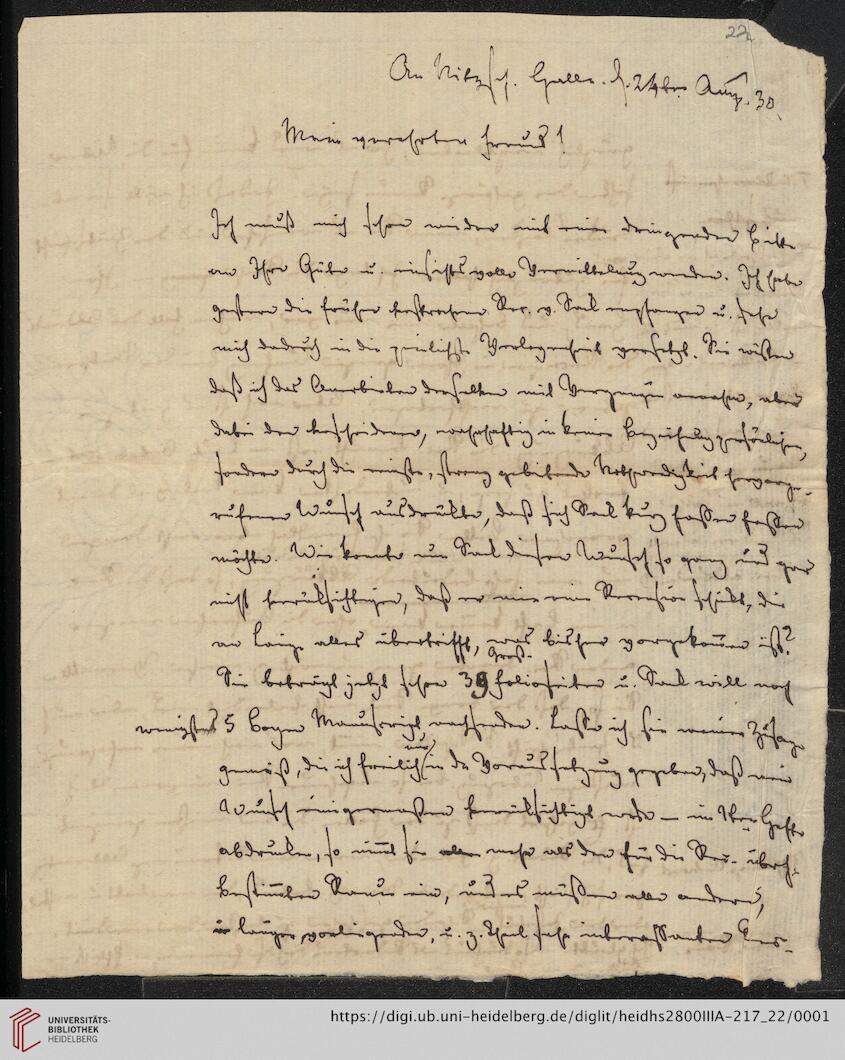 22.
An Nitzsch. Halle. d. 24ten Aug. 30.
Mein verehrter Freund!
Ich muß mich schon wieder mit einer dringenden Bitte
an Ihre Güte u. einsichtsvolle Vermittelung wenden. Ich habe
gestern die früher besprochene Rec. v. Sack empfangen u. sehe
mich dadurch in die peinlichste Verlegenheit versetzt. Sie wissen
daß ich das Anerbieten derselben mit Vergnügen annahm, aber
dabei den bescheidenen, wahrhaftig in keiner Beziehung persönlichen,
sondern durch die ernste, streng gebietende Nothwendigkeit hervorge-
rufenen Wunsch ausdrückte, daß sich Sack kurz fassen
möchte. Wie konnte nun Sack diesen Wunsch so ganz und gar
nicht berücksichtigen, daß er mir eine Recension schickt, die
an Länge alles übertrifft, was bisher vorgekommen ist?
Sie beträgt jetzt schon 39 Groß-folioseiten u. Sack will noch
wenigstens 5 Bogen Manuscript nachsenden. Lasse ich sie meiner Zusage
gemäß, die ich freilich nur in der Voraussetzung gegeben, daß mein
Wunsch einigermaßen berücksichtigt werde — im Hefte
abdrucken, so nimmt sie mehr als den für die Rec.
bestimmten Raum ein, und es müßen alle anderen,
länger vorliegenden, u. z. Theil sehr interessanten Rec-
UNIVERSITÄTS-
BIBLIOTHEK
HEIDELBERG
https://digi.ub.uni-heidelberg.de/diglit/heidhs2800IIIA-217_22/0001